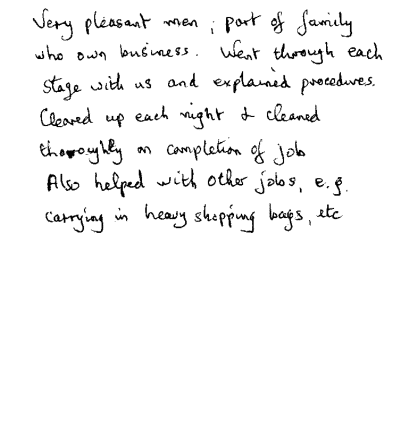 Very pleasant men; part of family
who own business. Went through each
stage with us and explained procedures.
Cleared up each night & cleaned
thoroughly on completion of job
Also helped with other jobs, e.g.
carrying in heavy shopping bags, etc